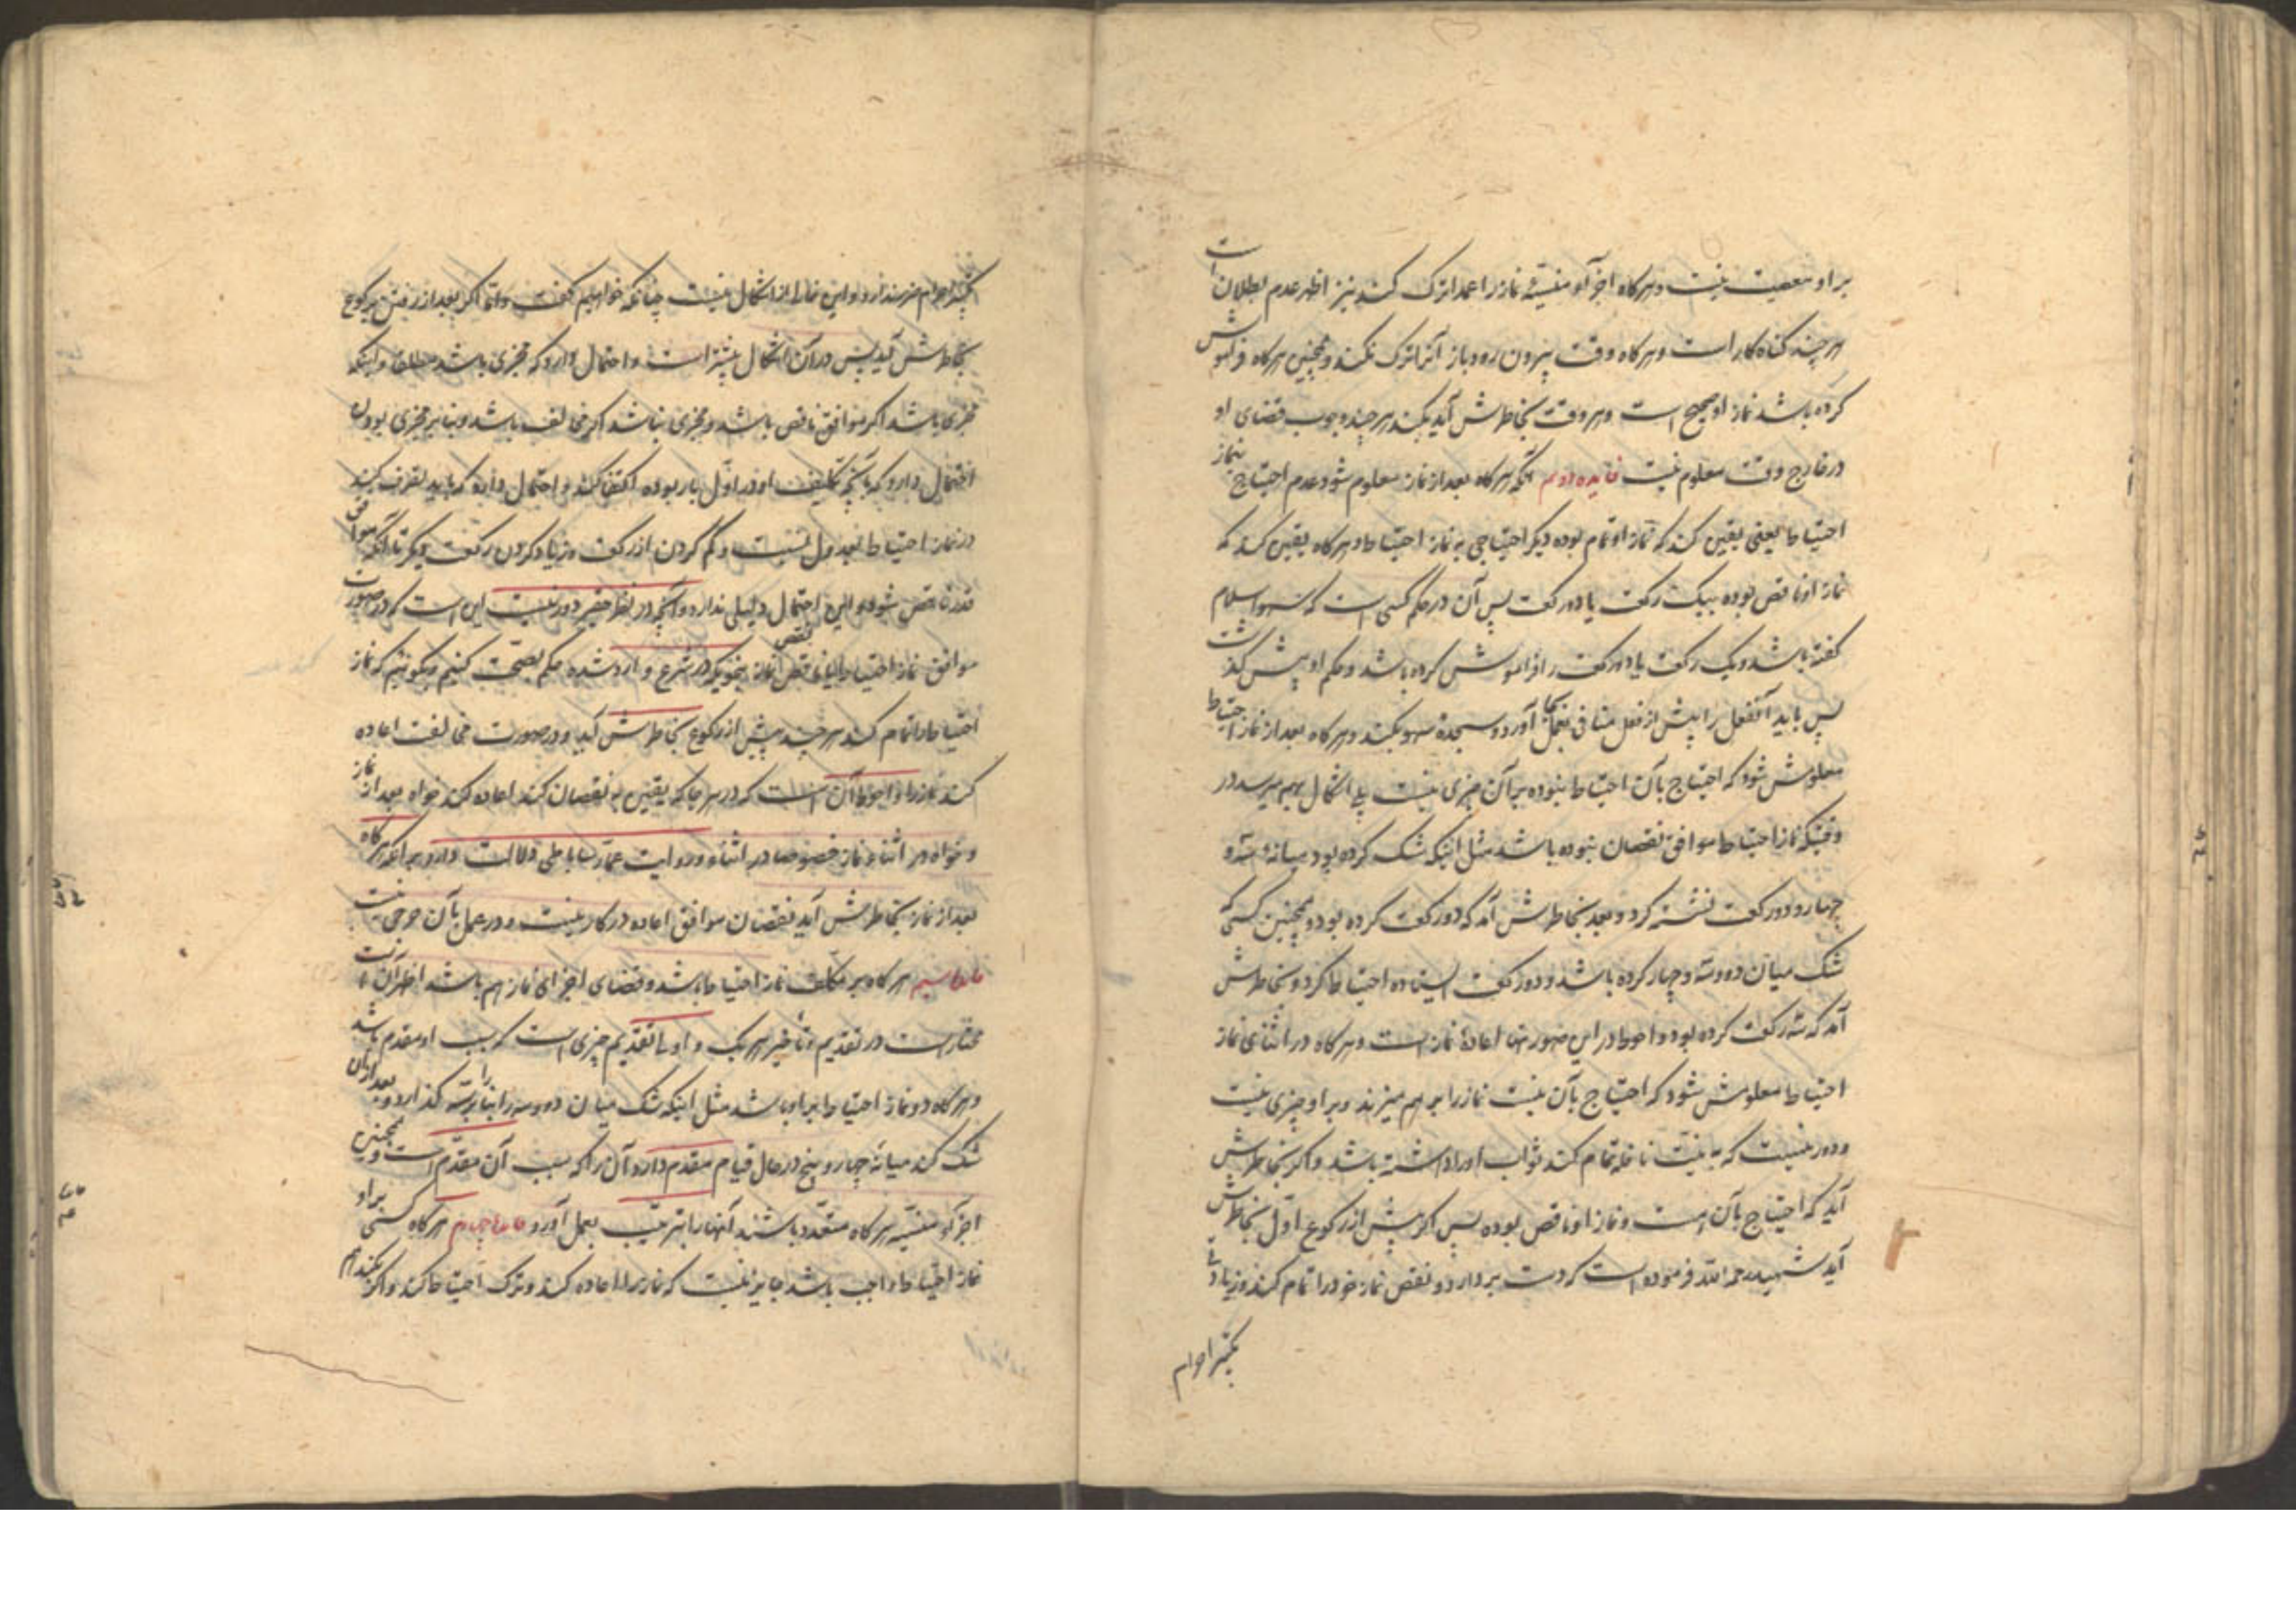 بر او معصیت نیست و هرگاه اجزاء منسیهٔ نماز را عمدا ترک کند نیز اظهر عدم بطلان است
هر چند گناه کار است و هرگاه وقت بیرون رود باز آنرا ترک نکند و همچنین هرگاه فراموش
کرده باشد نماز او صحیح است و هر وقت بخاطرش آید بکند هر چند وجوب قضای او
در خارج وقت معلوم نیست فایده دویم آنکه هرگاه بعد از نماز معلوم شود عدم احتیاج بنماز
احتیاط یعنی یقین کند که نماز او تمام بوده دیگر احتیاجی به نماز احتیاط و هرگاه یقین کند که
نماز او ناقص بوده بیک رکعت یا دو رکعت پس آن در حکم کسی است که سهوا سلام
گفته باشد و یک رکعت یا دو رکعت را فراموش کرده باشد و حکم او پیش گذشت
پس باید آنفعل را پیش از فعل منافی بعمل آورد و سجدهٔ سهو بکند و هرگاه بعد از نماز احتیاط
معلومش شود که احتیاج بآن احتیاط نبوده بر آن چیزی نیست بلی اشکال بهم میرسد در
وقتیکه نماز احتیاط موافق نقصان نبوده باشد مثل اینکه شک کرده بود میانهٔ سه و
چهار و دو رکعت نشسته کرد و بعد بخاطرش آمد که دو رکعت کرده بود و همچنین کسی که
شک میان دو و سه و چهار کرده باشد و دو رکعت ایستاده احتیاط کرد و بخاطرش
آمد که سه رکعت کرده بود و احوط در این صورتها اعادهٔ نماز است و هرگاه در اثنای نماز
احتیاط معلومش شود که احتیاج بآن نیست نماز را بر هم میزند و بر او چیزی نیست
و دور نیست که به نیت نافله تمام کند ثواب او را داشته باشد و اگر بخاطرش
آید که احتیاج بآن هست و نماز او ناقص بوده پس اگر پیش از رکوع اول بخاطرش
آید شهید رحمه الله فرموده است که دست بردارد و نقص نماز خود را تمام کند و زیادتی
تکبیر احرام
تکبیر احرام ضرر ندارد و این خالی از اشکال نیست چنانکه خواهیم گفت و اما اگر بعد از رفتن برکوع
بخاطرش آید پس در آن اشکال بیشتر است و احتمال دارد که مجزی باشد مطلقا و اینکه
مجزی باشد اگر موافق ناقص باشد و مجزی نباشد اگر مخالف باشد و بنا بر مجزی بودن
احتمال دارد که بآنچه تکلیف او در اول بار بوده اکتفا کند و احتمال دارد که باید تصرف کند
در نماز احتیاط بعدول نشست و کم کردن از رکعت و زیاد کردن رکعت دیگر تا آنکه موافق
قدر ناقص شود و این احتمال دلیلی ندارد و آنچه در نظر حقیر دور نیست این است که در صورت
موافق نماز احتیاط با ناقص نقص نماز بنحویکه در شرع وارد شده حکم بصحت کنیم و بگوئیم که نماز
احتیاط را تمام کند هر چند پیش از رکوع بخاطرش آید و در صورت مخالفت اعاده
کند نماز را و احوط آن است که در هر جا که یقین به نقصان کند اعاده کند خواه بعد از نماز
و خواه در اثناء نماز خصوصا در اثناء و روایت عمار ساباطی دلالت دارد بر آنکه هرگاه
بعد از نماز بخاطرش آید نقصان موافق اعاده در کار نیست و در عمل بآن حرجی نیست
فایده سیم هرگاه بر مکلف نماز احتیاط باشد و قضای اجزای نماز هم باشد اظهر آن است
مختار است در تقدیم و تأخیر هر یک و اولی تقدیم چیزی است که سبب او مقدم باشد
و هرگاه دو نماز احتیاط بر او باشد مثل اینکه شک میان دو و سه را بنا بر سه گذارد و بعد از آن
شک کند میانهٔ چهار و پنج در حال قیام مقدم دارد آن را که سبب آن مقدم است و همچنین
اجزاء منسیه هرگاه متعدد باشند آنها را بترتیب بعمل آورد فایده چهارم هرگاه کسی بر او
نماز احتیاط واجب باشد جایز نیست که نماز را اعاده کند و ترک احتیاط کند و اگر بکند هم